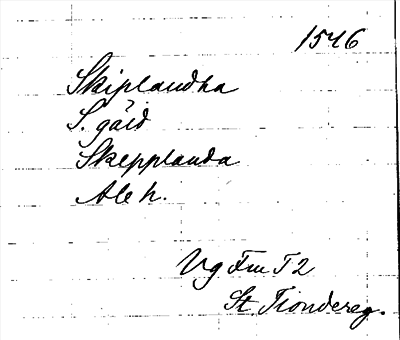 1546
Skiplandha
S. gård
Skepplanda
Ale h.
Vg Fm T 2
St Tiondereg.